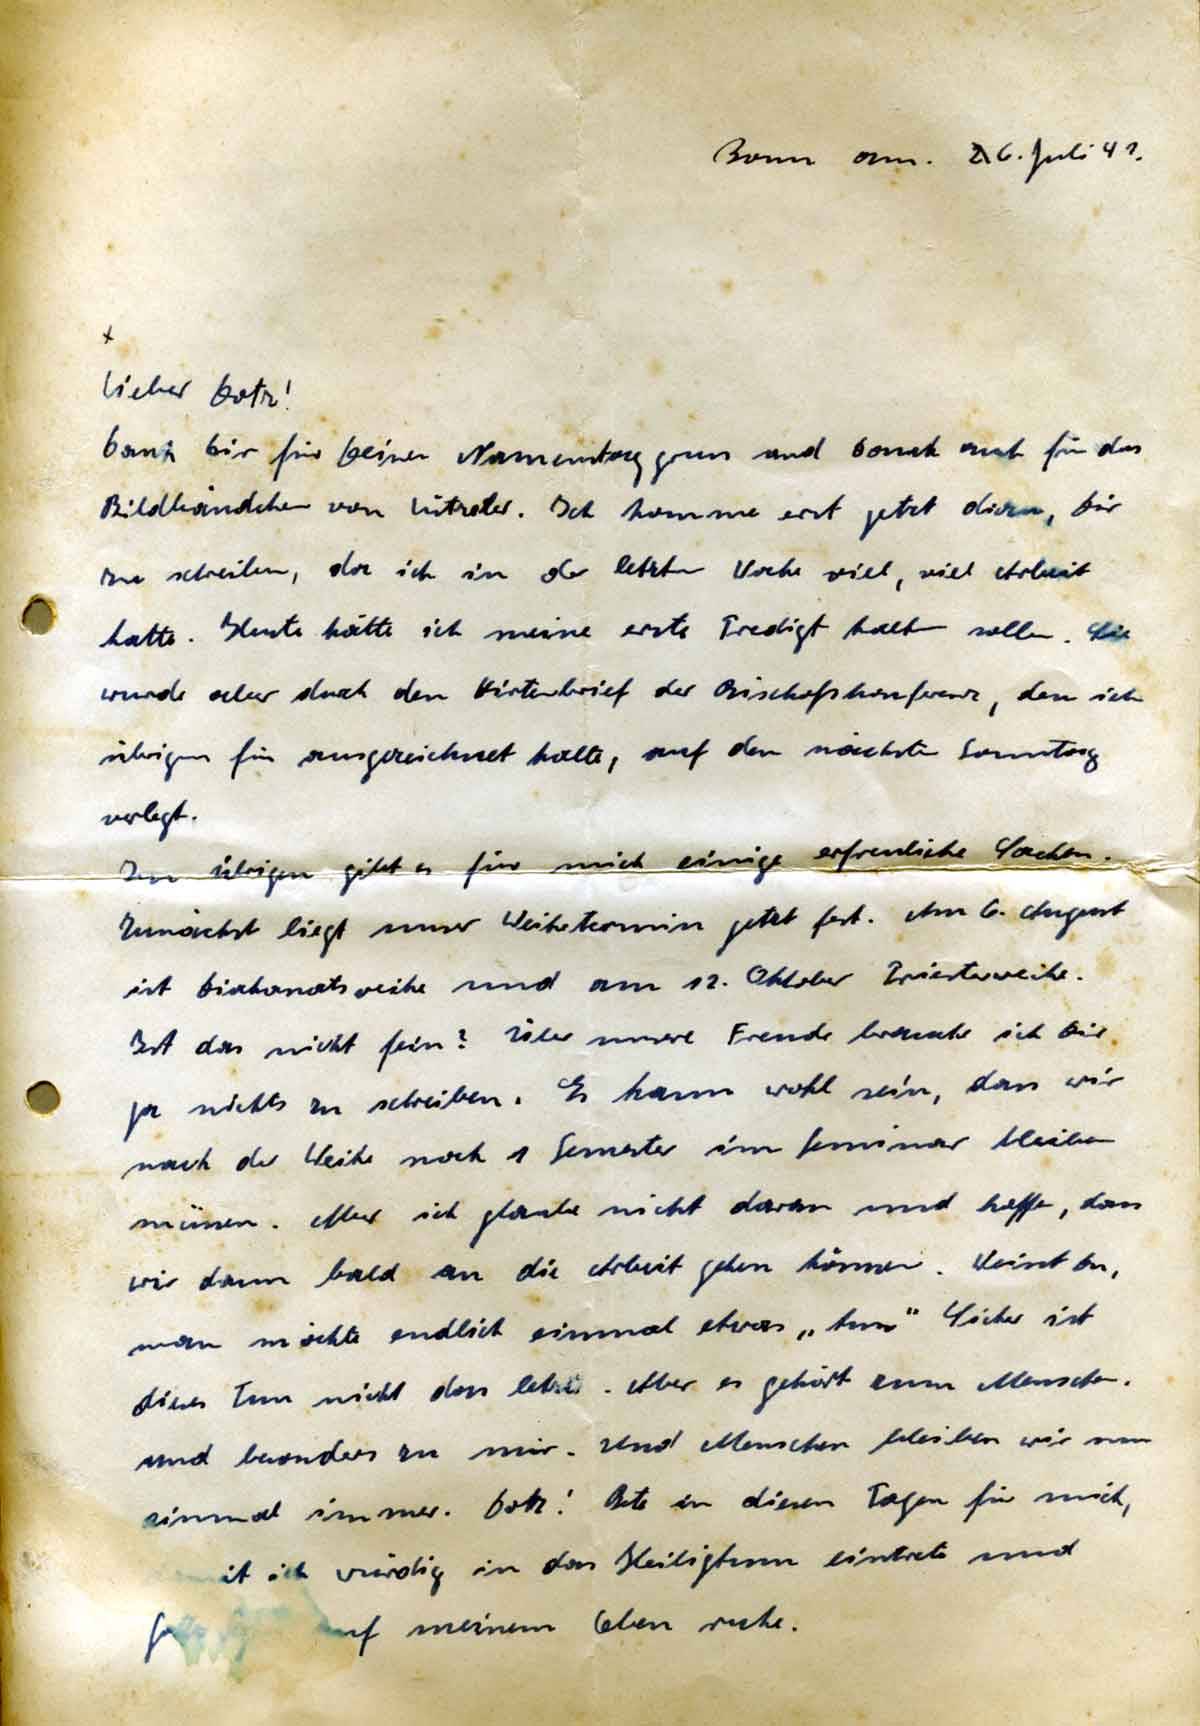 Bonn am. 26. Juli 41.
+
Lieber Dotz!
Dank Dir für Deinen Namenstaggruss und Dank auch für das
Bildbändchen von Lützeler. Ich komme erst jetzt daran, Dir
zu schreiben, da ich in der letzten Woche viel, viel Arbeit
hatte. Heute hätte ich meine erste Predigt halten sollen. Sie
wurde aber durch den Hirtenbrief der Bischofskonferenz, den ich
übrigens für ausgezeichnet halte, auf den nächsten Sonntag
verlegt.
Im übrigen gibt es für mich einige erfreuliche Sachen.
Zunächst liegt unser Weihetermin jetzt fest. Am 6. August
ist Diakonatsweihe und am 12. Oktober Priesterweihe.
Ist das nicht fein? Über unsere Freude brauche ich Dir
ja nichts zu schreiben. Es kann wohl sein, dass wir
nach der Weihe noch 1 Semester im Seminar bleiben
müssen. Aber ich glaube nicht daran und hoffe, dass
wir dann bald an die Arbeit gehen können. Weisst Du,
man möchte endlich einmal etwas „tun" Sicher ist
dieses Tun nicht das letzte. Aber es gehört zum Menschen.
und besonders zu mir. Und Menschen bleiben wir nun
einmal immer. Dotz! Bete in diesen Tagen für mich,
ich würdig in das Heiligtum eintrete und
auf meinem Leben ruhe.